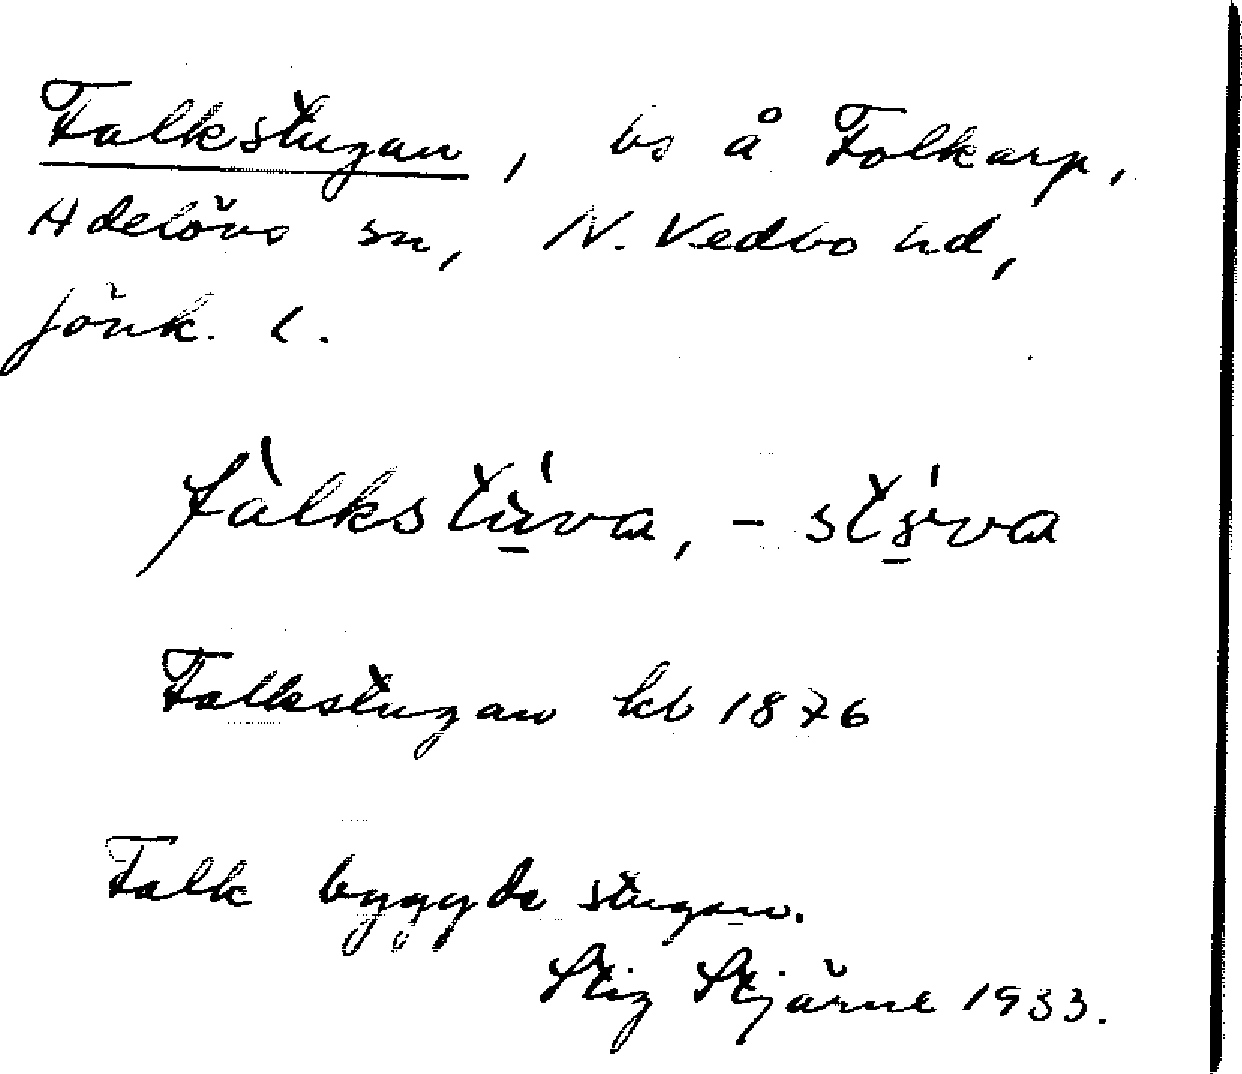 Falkstugan, bs å Folkarp,
Adelövs sn, N. Vedbo hd,
Jönk. l.
fàlkstú̱va, - stý̱va
Falkstugan kb 1876
Falk byggde stugan.
Stig Stjärne 1933.